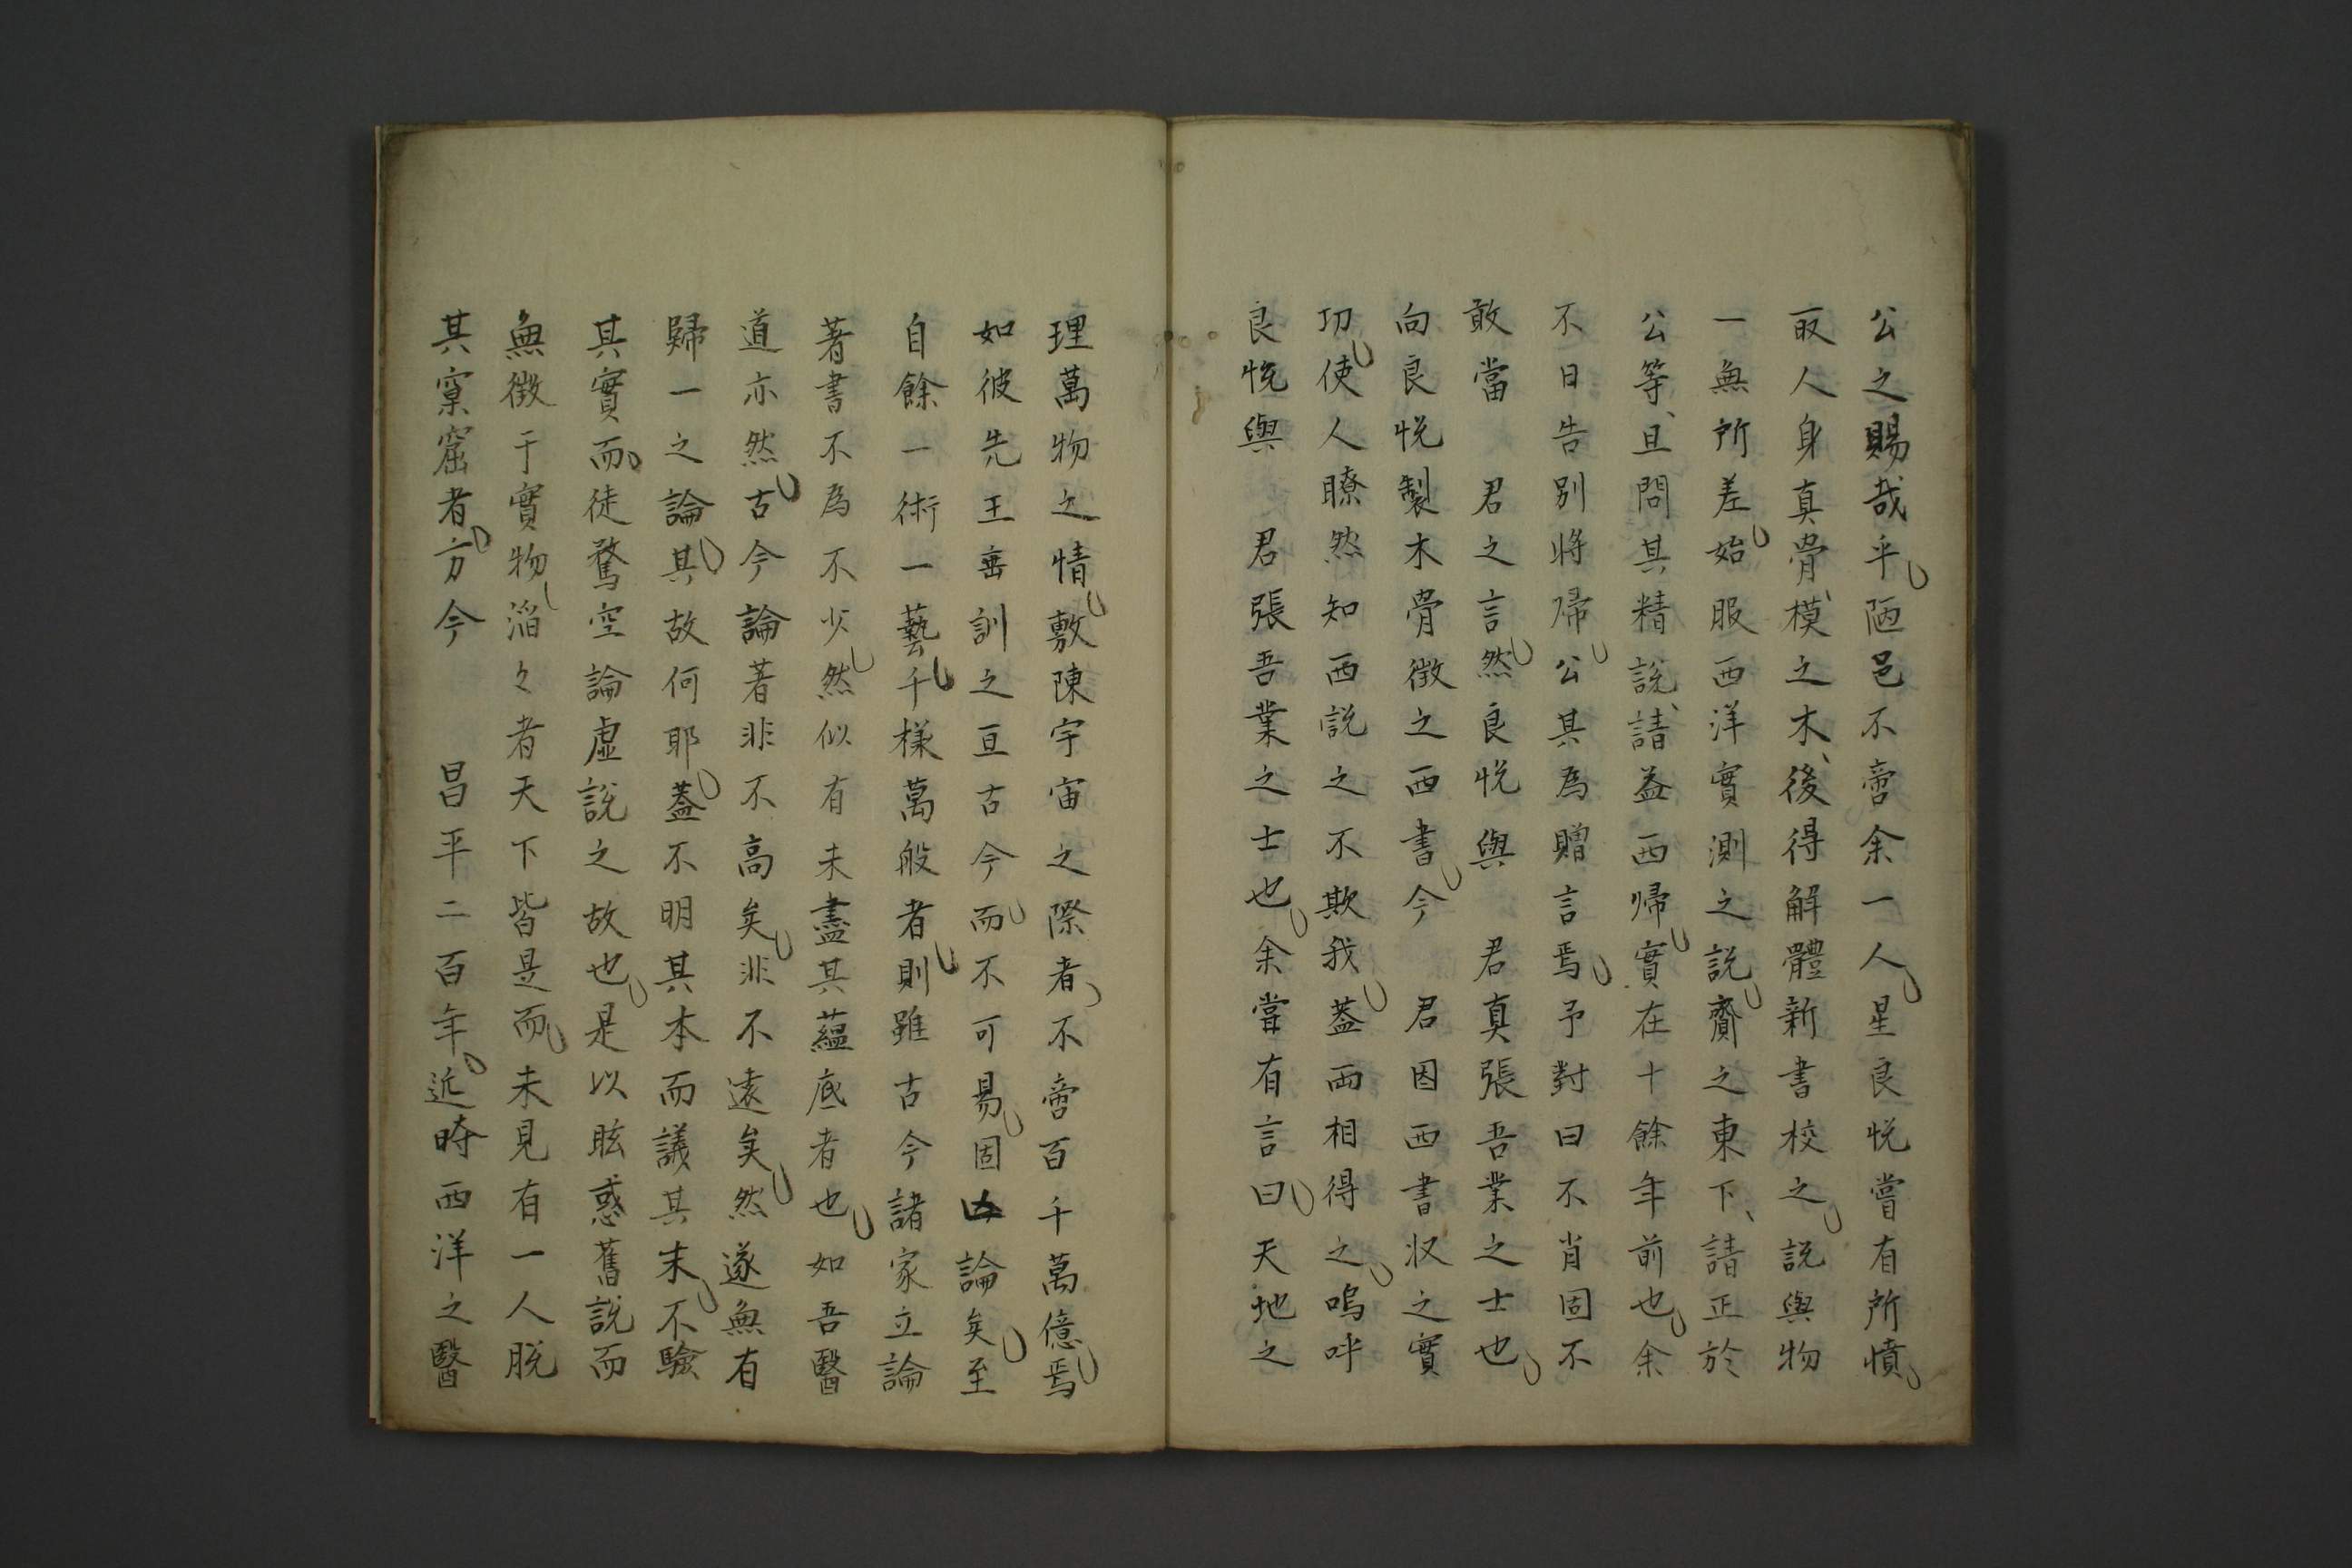 公之賜哉乎陋邑不啻余一人星良悅嘗有所憤
取人身真骨模之木後得解體新書校之說與物
一無所差始服西洋實測之說齎之東下請正於
公等且問其精說請益西帰實在十餘年前也余
不日告別将帰公其為贈言焉予對曰不肖固不
敢當　君之言然良悅與　君真張吾業之士也
向良悅製木骨徴之西書今　君因西書収之實
功使人瞭然知西說之不欺我蓋両相得之嗚呼
良悅與　君張吾業之士也余嘗有言曰天地之
理萬物之情敷陳宇宙之際者不啻百千萬億焉
如彼先王垂訓之亘古今而不可易固亡論矣至
自餘一術一藝千様萬般者則雖古今諸家立論
著書不為不少然似有未盡其蘊底者也如吾醫
道亦然古今論著非不高矣非不遠矣然遂無有
歸一之論其故何耶蓋不明其本而議其末不驗
其實而徒騖空論虚說之故也是以眩惑舊說而
無徴于實物滔々者天下皆是而未見有一人脫
其窠窟者方今　昌平二百年近時西洋之醫